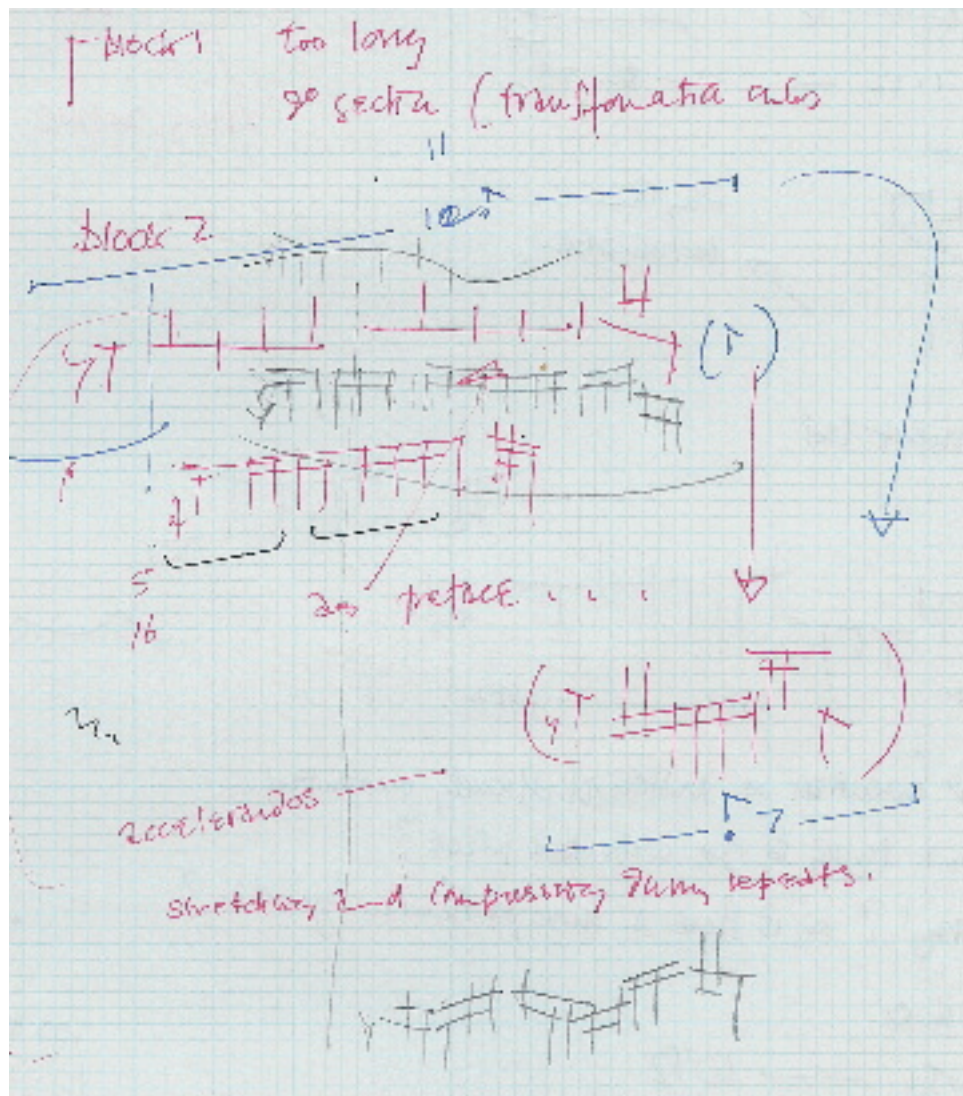 block 1 too long
section (transformation
block 2
5
16
as preface . . . .
accelerandos
stretching and compressing repeats.